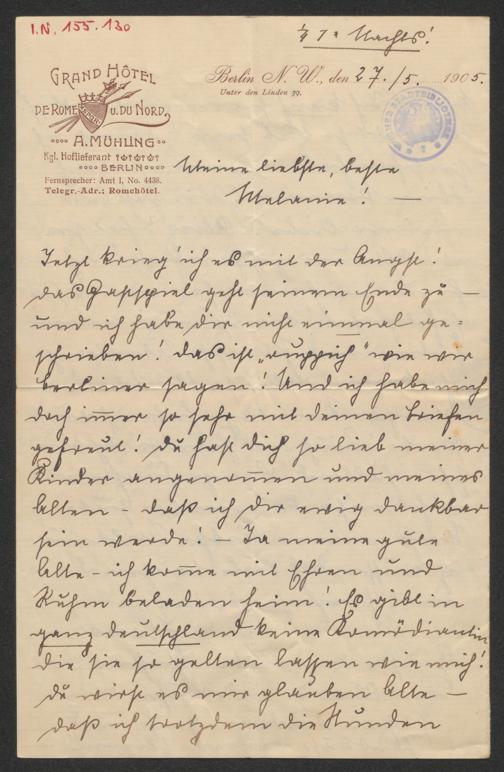 I.N. 155.130
¼ 7 Nachts!
GRAND HÔTEL
DE ROME u. DU NORD.
A. MÜHLING
Kgl. Hoflieferant
BERLIN
Fernsprecher: Amt I, No. 4438.
Telegr.-Adr.: Romehôtel.
Berlin N. W., den 27./5. 1905.
Unter den Linden 39.
Meine liebste, beste
Melanie! —
Jetzt krieg' ich es mit der Angst!
das Gastspiel geht seinem Ende zu —
und ich habe dir nicht einmal ge=
schrieben! das ist „ruppich" wie wir
berliner sagen! Und ich habe mich
doch immer so sehr mit deinen briefen
gefreut! du hast dich so lieb meiner
Kinder angenommen und meines
Alten – daß ich dir ewig dankbar
sein werde! – Ja meine gute
Alte – ich komme mit Ehren und
Ruhm beladen heim! Es gibt in
ganz deutschland keine Komödiantin
die sie so gelten lassen wie mich!
du wirst es mir glauben Alte –
daß ich trotzdem die Stunden